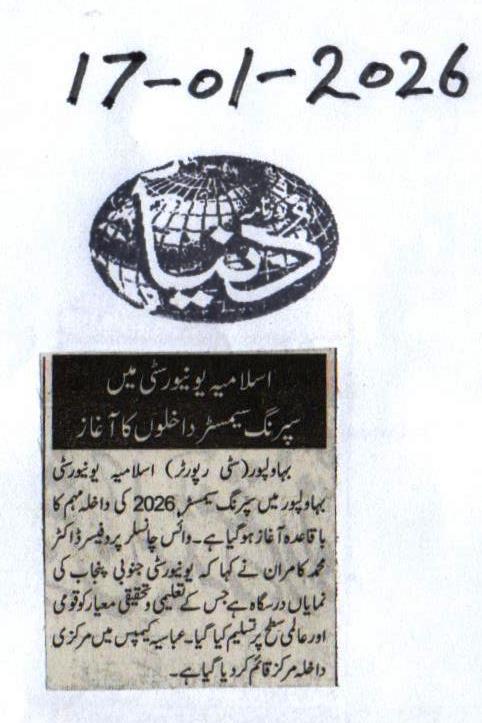 17-01-2026
روزنامہ
دنیا
اسلامیہ یونیورسٹی میں
سپرنگ سیمسٹر داخلوں کا آغاز
بہاولپور (سٹی رپورٹر) اسلامیہ یونیورسٹی
بہاولپور میں سپرنگ سیمسٹر 2026 کی داخلہ مہم کا
باقاعدہ آغاز ہو گیا ہے۔ وائس چانسلر پروفیسر ڈاکٹر
محمد کامران نے کہا کہ یونیورسٹی جنوبی پنجاب کی
نمایاں درسگاہ ہے جس کے تعلیمی و تحقیقی معیار کو قومی
اور عالمی سطح پر تسلیم کیا گیا۔ عباسیہ کیمپس میں مرکزی
داخلہ مرکز قائم کر دیا گیا ہے۔